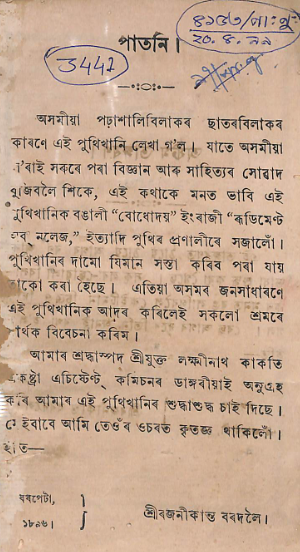 পাতনি।
3447
অসমীয়া পঢ়াশালিবিলাকৰ ছাতৰবিলাকৰ
কাৰণে এই পুথিখানি লেখা গ'ল। যাতে অসমীয়া
সৰুৰে পৰা বিজ্ঞান আৰু সাহিত্যৰ সোৱাদ
বুজিবলৈ শিকে, এই কথাকে মনত ভাবি এই
পুথিখানিক বঙালী “বোধোদয়” ইংৰাজী “ৰুডিমেণ্ট
নলেজ,” ইত্যাদি পুথিৰ প্ৰণালীৰে সজালোঁ।
পুথিখানিৰ দামো যিমান সস্তা কৰিব পৰা যায়
কৰা হৈছে। এতিয়া অসমৰ জনসাধাৰণে
এই পুথিখানিক আদৰ কৰিলেই সকলো শ্ৰমৰে
বিবেচনা কৰিম।
আমাৰ শ্ৰদ্ধাস্পদ শ্ৰীযুক্ত লক্ষীনাথ কাকতি
এচিষ্টেণ্ট্ কমিচনৰ ডাঙ্গৰীয়াই অনুগ্ৰহ
কৰি আমাৰ এই পুথিখানিৰ শুদ্ধাশুদ্ধ চাই দিছে।
ইবাবে আমি তেওঁৰ ওচৰত কৃতজ্ঞ থাকিলোঁ।
ইতি—
বৰপেটা,
১৮৯৬।
শ্ৰীৰজনীকান্ত বৰদলৈ।